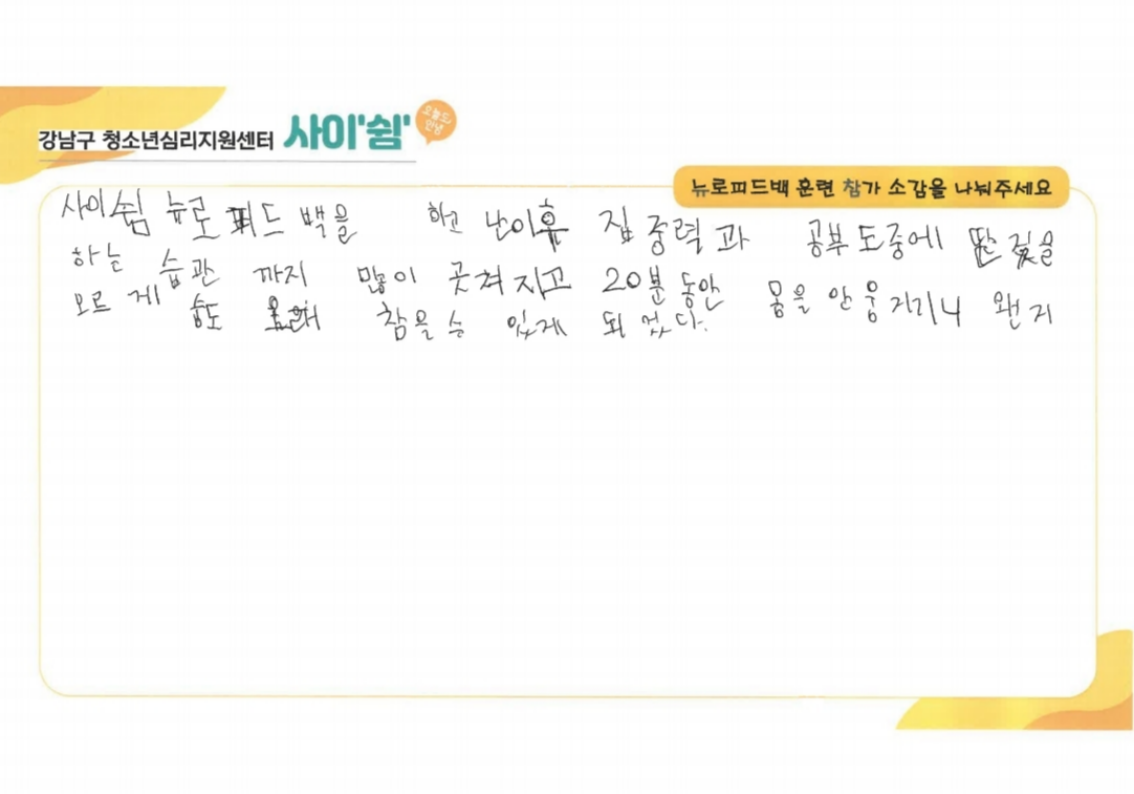 강남구 청소년심리지원센터 사이'쉼'
오늘도 안녕
뉴로피드백 훈련 참가 소감을 나눠주세요
사이쉼 뉴로피드백을 하고 난이후 집중력과 공부도중에 딴짖을
하는 습관 까지 많이 곳쳐지고 20분동안 몸을 안움지기니 왠지
모르게 숨도 오래 참을수 있게 되었다.